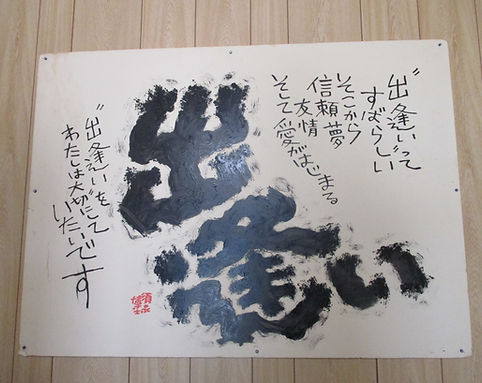 “出逢い”って
すばらしい
そこから
夢
信頼
友情
そして愛がはじまる
出逢い
“出逢い”を
わたしは大切にして
いたいです
須永